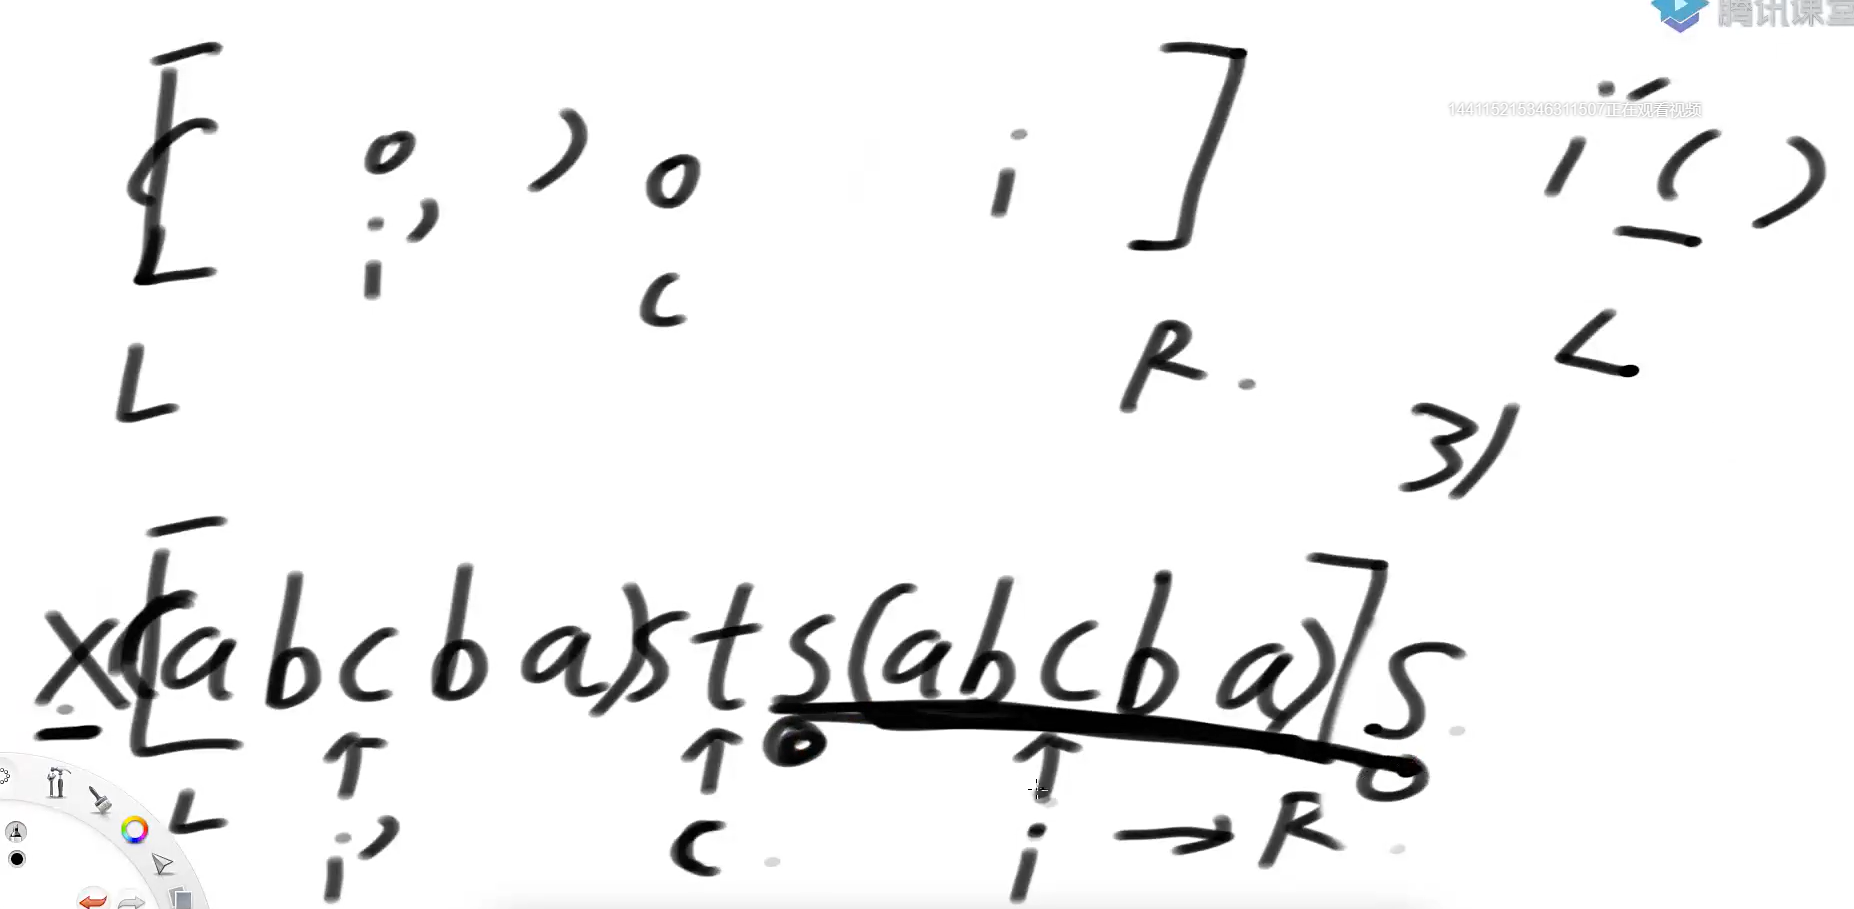 腾讯课堂
144115215346311507正在观看视频
[ ( o ) o i ] i' ( )
i' c
L R . L
3)
x [ ( a b c b a ) s t s ( a b c b a ) ] s
L i' c i → R